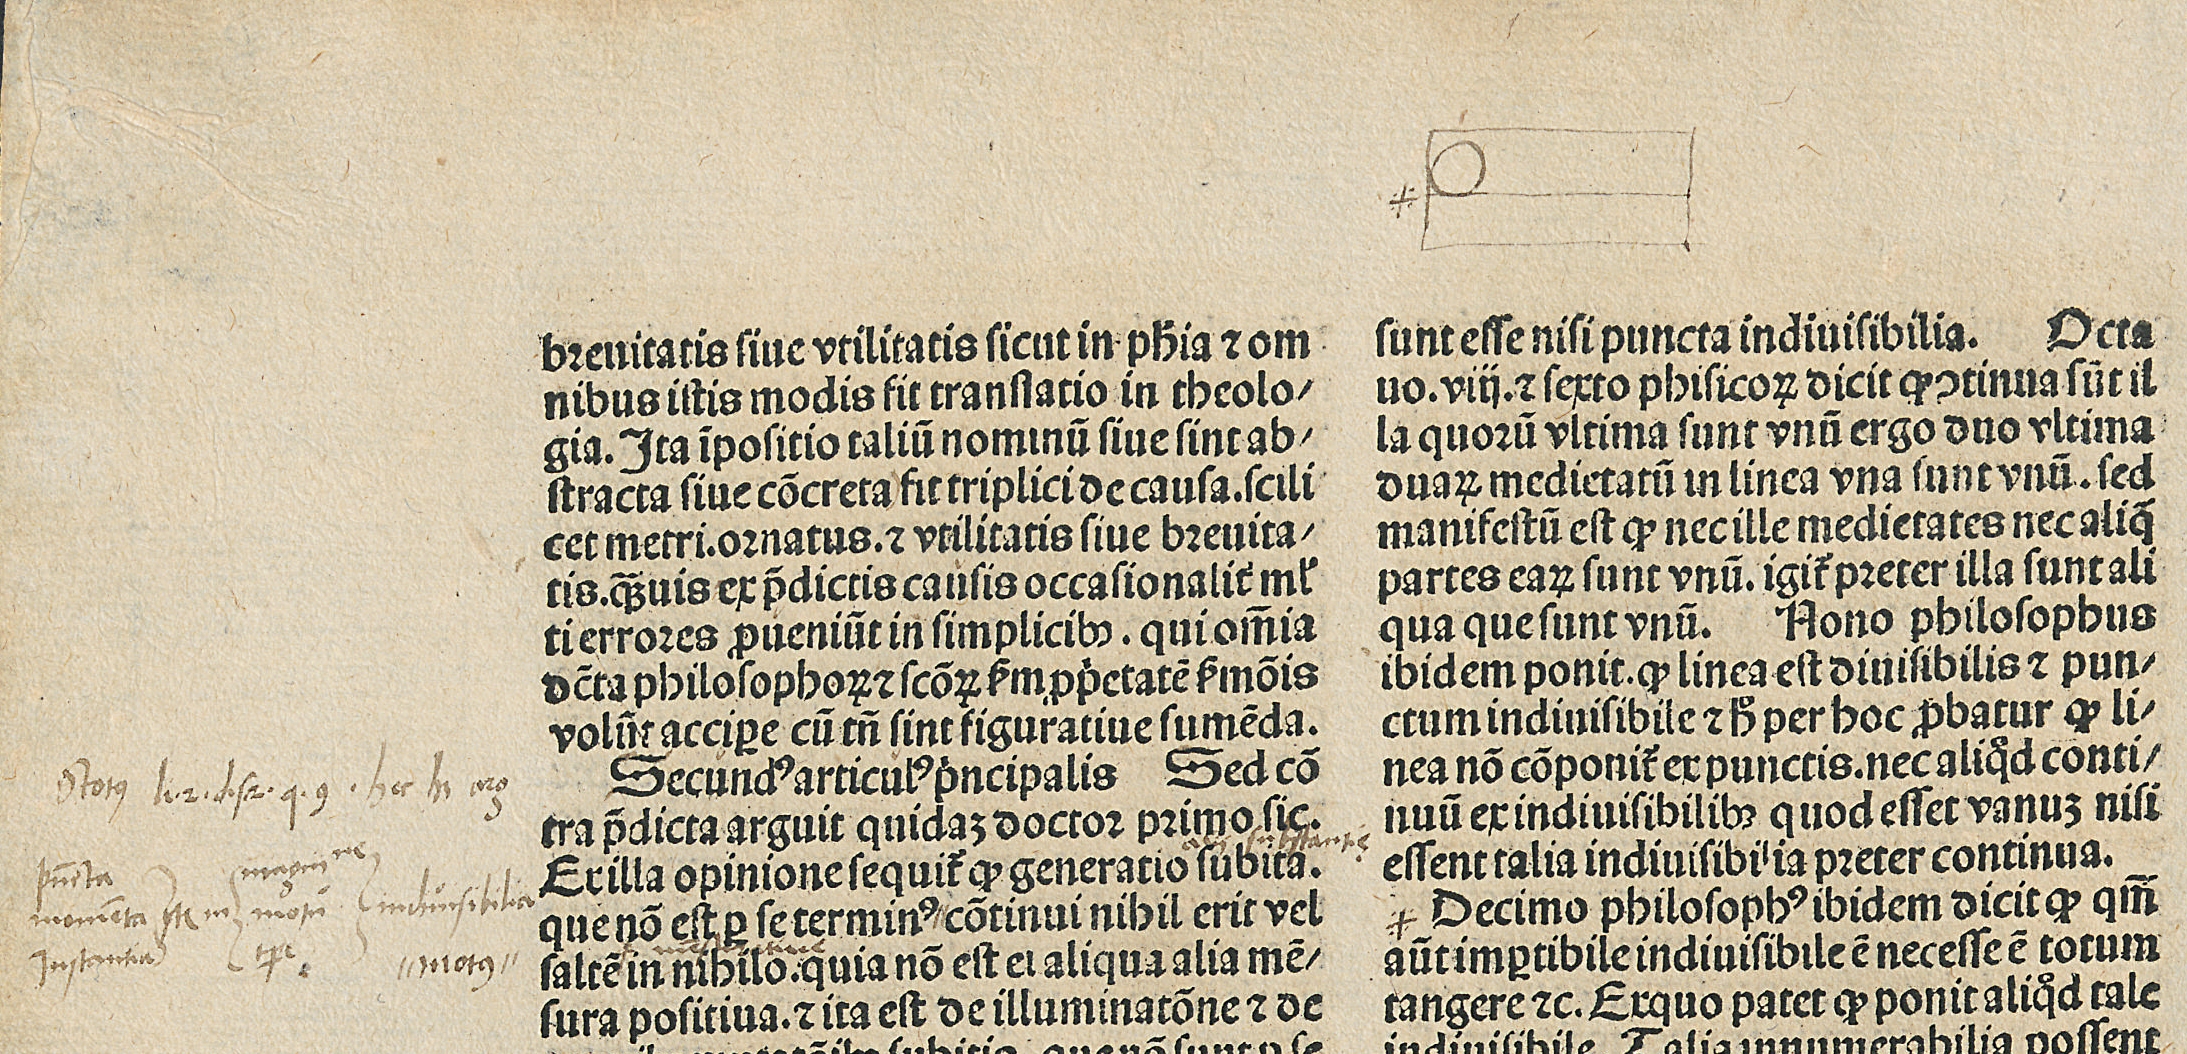 breuitatis siue vtilitatis sicut in ph̄ia ⁊ om
nibus istis modis fit translatio in theolo/
gia. Ita īpositio taliū nominū siue sint ab/
stracta siue cōcreta fit triplici de causa. scili
cet metri. ornatus. ⁊ vtilitatis siue breuita/
tis. q̄uis ex p̄dictis causis occasionalit̄ ml̄
ti errores ꝓueniūt in simplicibꝫ. qui om̄ia
dc̄ta philosophoꝝ ⁊ scōꝝ ẜm ꝓp̄etatē ẜmōis
volūt accipe cū tn̄ sint figuratiue sumēda.
Secundꝰ articulꝰ p̄ncipalis Sed cō
tra p̄dicta arguit quidaꝫ doctor primo sic.
Ex illa opinione sequit̄ ꝙ generatio subita.
que nō est ꝑ se terminꝰ cōtinui nihil erit vel
saltē in nihilo. quia nō est ei aliqua alia mē/
sura positiua. ⁊ ita est de illuminatōne ⁊ de
Scotus li. 2. dist. 2. q. 9. hec
pūcta
momēta
Instantia
motu
indiuisibilia
motꝰ
sunt esse nisi puncta indiuisibilia. Octa
uo. viij. ⁊ sexto phisicoꝝ dicit ꝙ ꝯtinua sūt il
la quorū vltima sunt vnū ergo duo vltima
duaꝝ medietatū in linea vna sunt vnū. sed
manifestū est ꝙ nec ille medietates nec aliq̄
partes eaꝝ sunt vnū. igit̄ preter illa sunt ali
qua que sunt vnū. Nono philosophus
ibidem ponit. ꝙ linea est diuisibilis ⁊ pun/
ctum indiuisibile ⁊ h̄ per hoc ꝓbatur ꝙ li/
nea nō cōponit̄ ex punctis. nec aliqͦd conti/
nuū ex indiuisibilibꝫ quod esset vanuꝫ nisi
essent talia indiuisibilia preter continua.
Decimo philosophꝰ ibidem dicit ꝙ qm̄
aūt imꝑtibile indiuisibile ē necesse ē totum
tangere ⁊c. Ex quo patet ꝙ ponit aliqͦd tale
indiuisibile. Talia innumerabilia possent